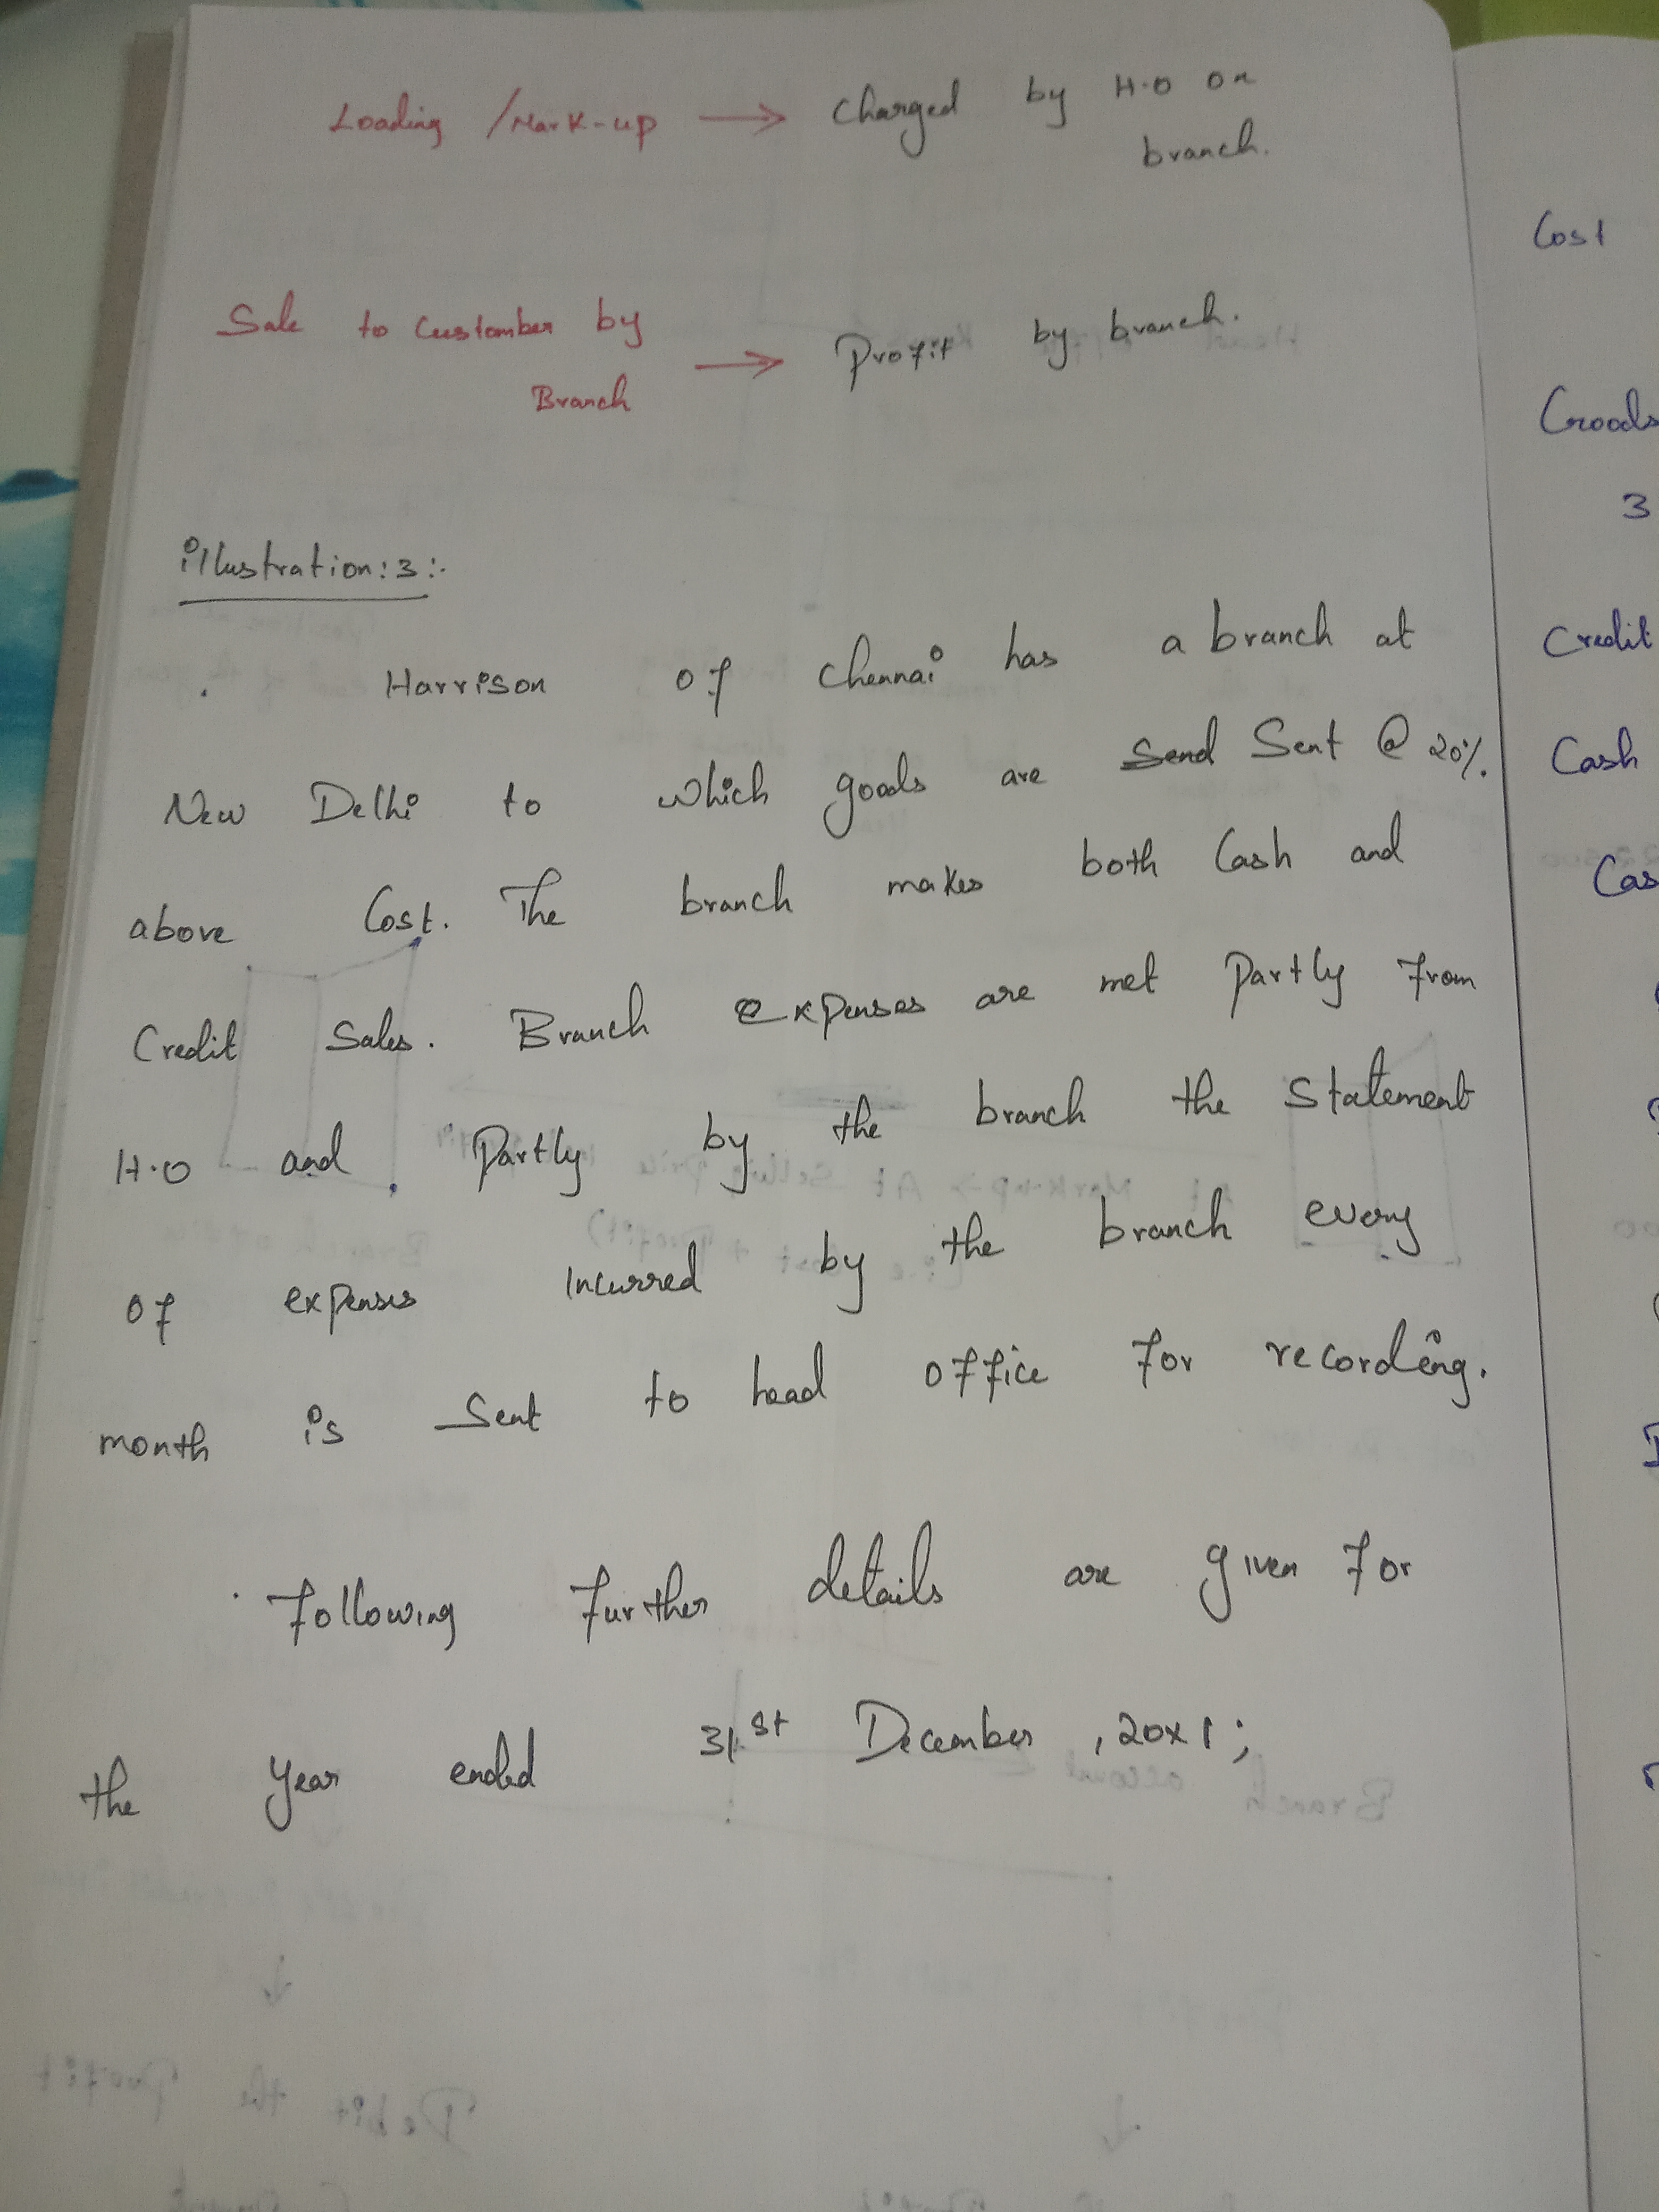 Loading /Mark-up → Charged by H.O on
branch.
Sale to Customber by
Branch → Profit by branch.
illustration:3:-
Harrison of Chennai has a branch at
New Delhi to which goods are Send Sent @ 20%
above Cost. The branch makes both Cash and
Credit Sales. Branch expenses are met Partly from
H.O and Partly by the branch the Statement
of expenses Incurred by the branch every
month is Sent to head office for recording.
Following further details are given for
the year ended 31st December, 20x1;
Cost
Goods
3
Credit
Cash
Cas